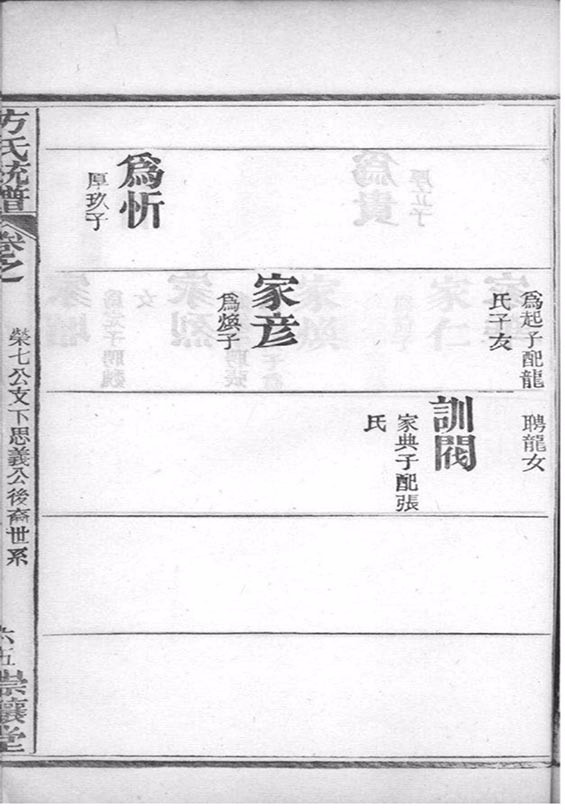 爲起子配龍
氏子友
聘龍女
訓閥
家典子配張
氏
家彦
爲煥子
爲忻
厚玖子
方氏統譜
卷之
榮七公支下思義公後裔世系
六五
崇讓堂